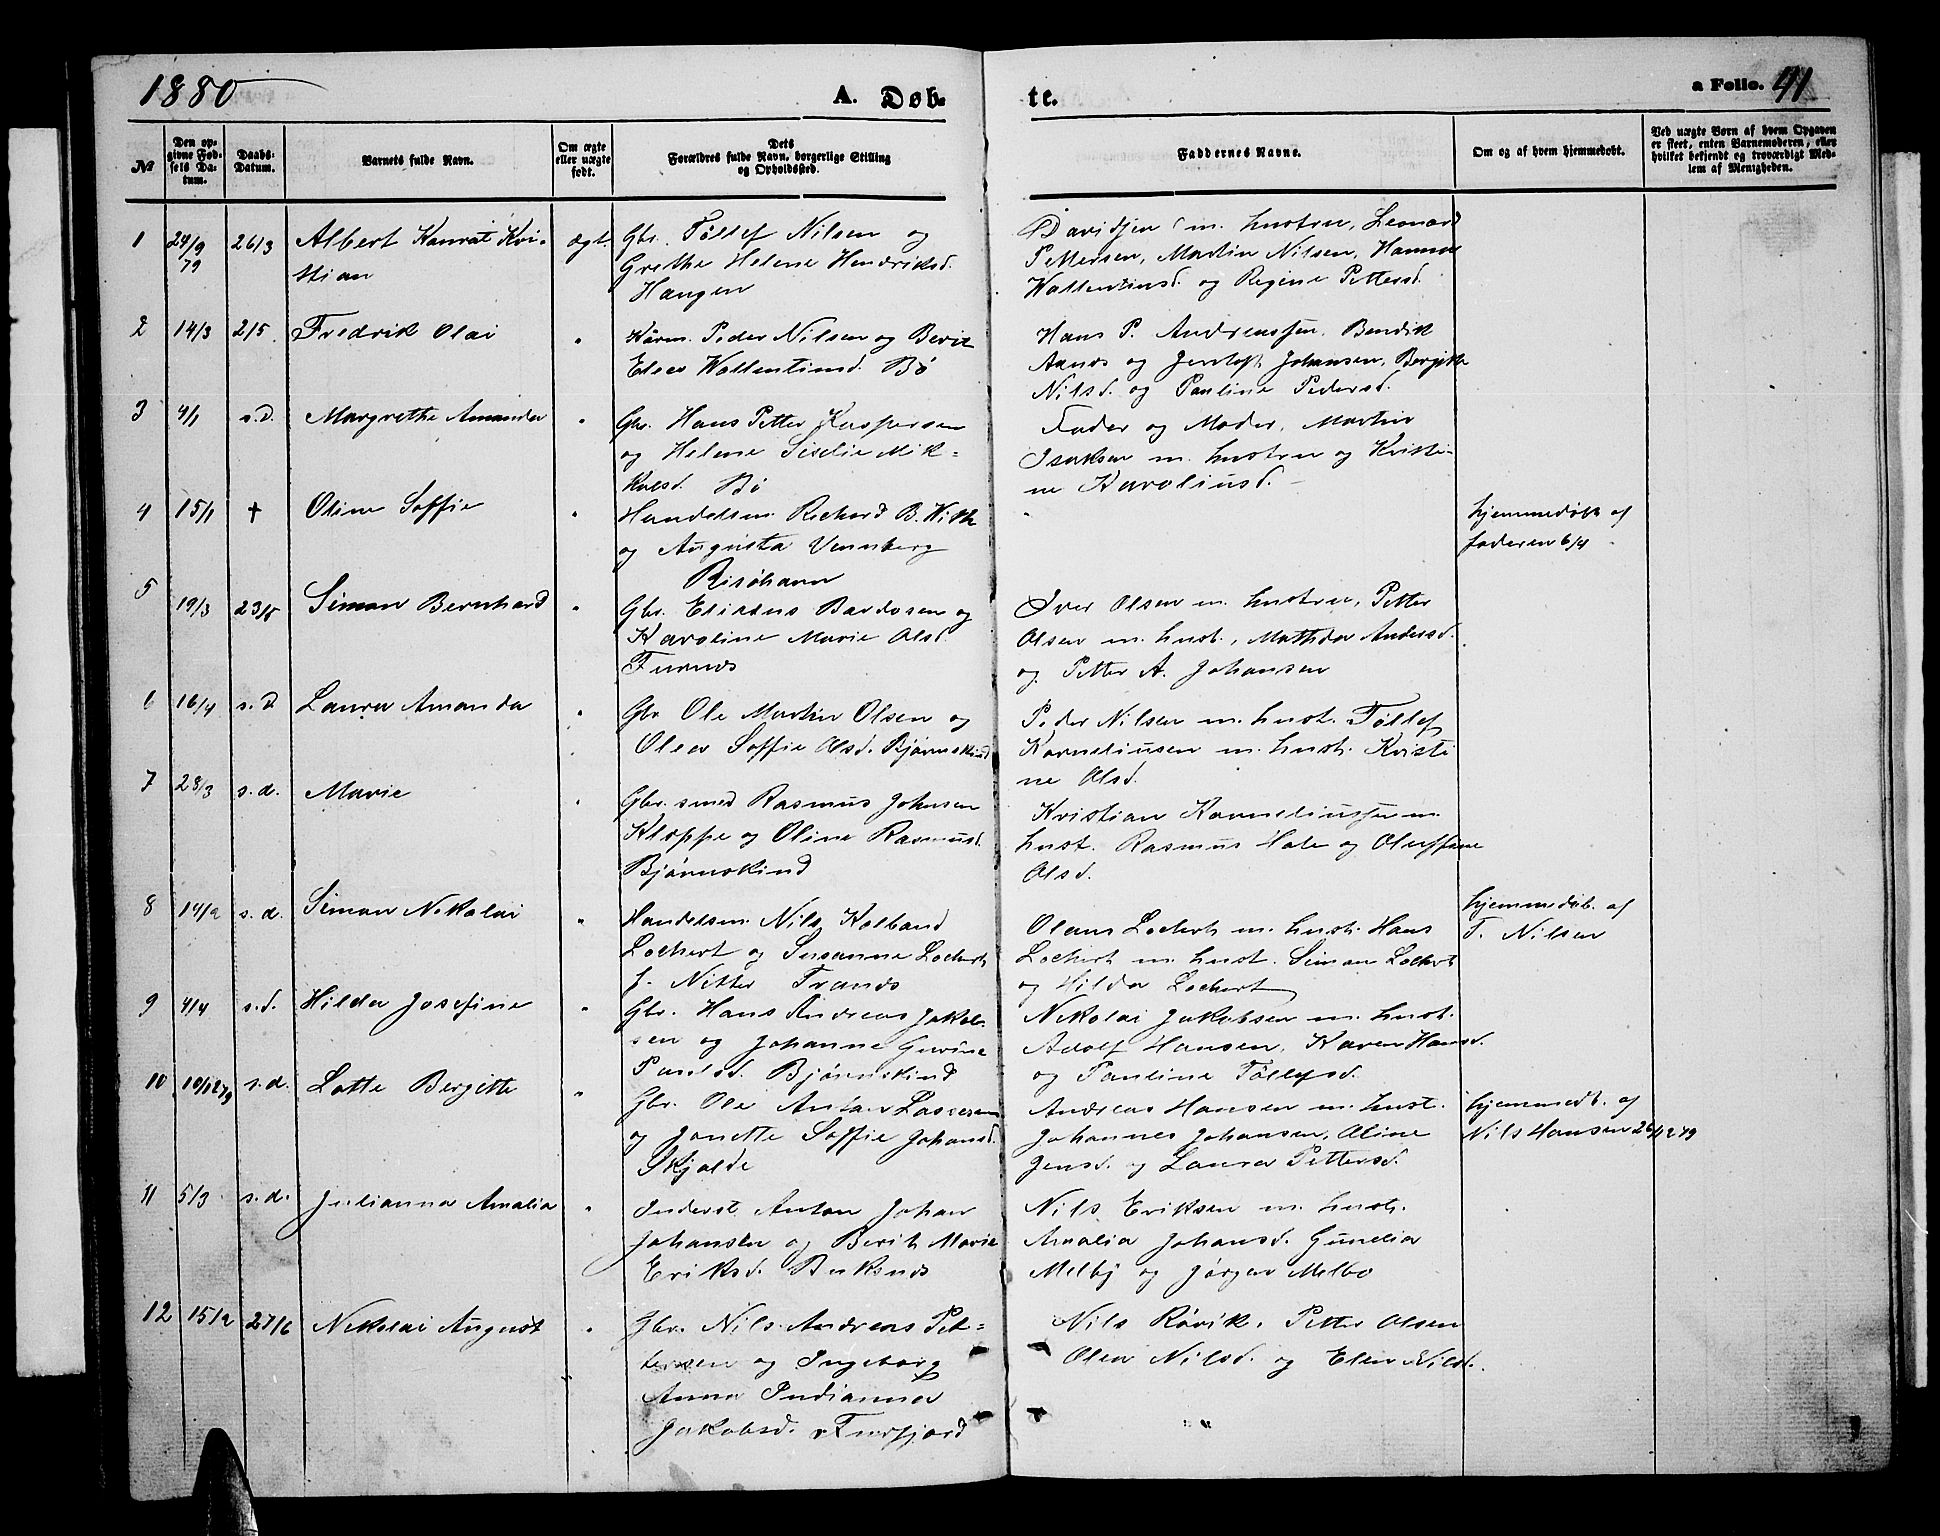 1880 A. Døb- te. a Folio. 41
№
Den op-
givne Fød-
sels Da-
tum.
Daabs-
Datum.
Barnets fulde Navn.
Om ægte
eller uægte
født.
Dets
Forældres fulde Navn, borgerlige Stilling
og Opholdssted.
Faddernes Navne.
Om og af hvem hjemmedøbt.
Ved uægte Børn af hvem Opgaven
er skeet, enten Barnemoderen, eller
hvilket bekjendt og troværdigt Med-
lem af Menigheden.
1 24/9 79 26/3 Albert Konrat Kri-
stian
ægt.
Gbr. Tøllef Nilsen og
Grethe Helene Hendriksd.
Haugen
m. hustru, Leonard
Pettersen, Martin Nilsen, Hanna
Wallentinsd. og Regine Pettersd.
2 14/3 2/5 Fredrik Olai "
Peder Nilsen og Berit
Elsea Wallentinsd. Bø
Hans P. Andreassen, Bendik
Aanes og Jentoft Johansen, Bergitte
Nilsd. og Pauline Pedersd.
3 4/1 s.D. Margrethe Amanda "
Gbr. Hans Petter Kaspersen
og Helene Siselie Mik-
kelsd. Bø
Fader og Moder, Martin
Isaksen m. hustru og Kristi-
ne Karoliusd.
4 15/1 + Oline Soffie "
Handelsm. Richard B. Kith
og Augusta Vennberg
Risøhavn
"
hjemmedøbt af
faderen 6/4
5 19/3 23/5 Simon Bernhard "
Gbr. Eliseus Bardosen og
Karoline Marie Olsd.
Fornes
Iver Olsen m. hustru, Petter
Olsen m. hust., Mathida Andersd.
og Petter A. Johansen
6 16/4 s.D Laura Amanda "
Gbr Ole Martin Olsen og
Olea Soffie Olsd. Bjørnskind
Peder Nilsen m. hust. Tøllef
Korneliusen m. hust. Kristi
ne Olsd.
7 28/3 s.d. Marie "
Gbr. smed Rasmus Johnsen
Kloppe og Oline Rasmusd.
Bjørnskind
Kristian Korneliussen m.
hust. Rasmus Hole og Oluffine
Olsd.
8 14/2 s.d. Simon Nikolai "
Handelsm. Nils Kolband
Lochert og Susanne Lochert
f. Nitter Tranes
Olaus Lochert m. hust. Hans
Lochert m. hust. Simon Lochert
og Hilda Lochert
hjemmedøb. af
T. Nilsen
9 4/4 s.d. Hilda Josefine "
Gbr. Hans Andreas Jakob-
sen og Johanne Gurine
Paulsd. Bjørnskind
Nikolai Jakobsen m. hust.
Adolf Hansen, Karen Hansd.
og Pauline Tøllefsd.
10 10/12 79 s.d. Lotte Bergitte "
Gbr. Ole Anton Lassesen
og Jonette Soffie Johansd.
Skjolde
Andreas Hansen m. hust.
Johannes Johansen, Oline
Jensd. og Laura Pettersd.
hjemmedt. af
Nils Hansen 26/12 79
11 5/3 s.d. Julianna Amalia "
Inderst Anton Johan
Johansen og Berith Marie
Eriksd. Buksnes
Nils Eriksen m. hust.
Amalia Johansd. Gunelia
Melby og Jørgen Melbo
12 15/2 27/6 Nikolai August "
Gbr. Nils Andreas Pet-
tersen og Ingeborg
Anna Indianna
Jakobsd. Forfjord
Nils Røvik, Petter Olsen
Olea Nilsd. og Elen Nilsd.
"